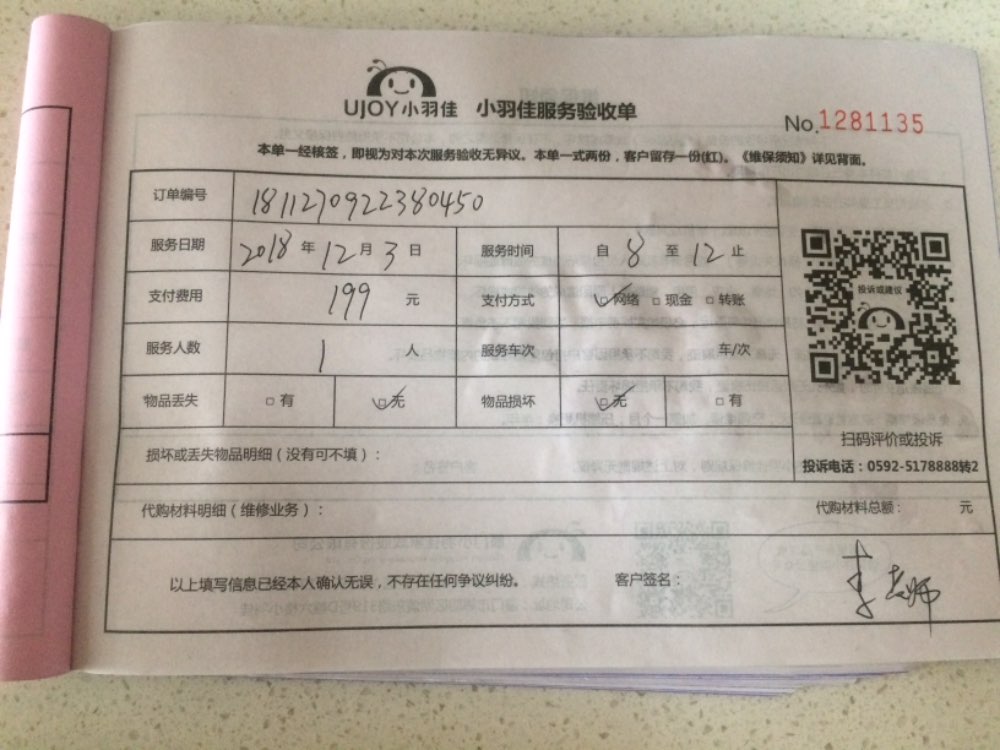 UJOY小羽佳 小羽佳服务验收单
No.1281135
本单一经核签，即视为对本次服务验收无异议。本单一式两份，客户留存一份(红)。《维保须知》详见背面。
订单编号 1811270922380450
服务日期 2018 年 12 月 3 日 服务时间 自 8 至 12 止
支付费用 199 元 支付方式 ☑网络 □现金 □转账
服务人数 1 人 服务车次 车/次
物品丢失 □有 ☑无 物品损坏 ☑无 □有
投诉或建议
扫码评价或投诉
投诉电话：0592-5178888转2
损坏或丢失物品明细（没有可不填）：
代购材料明细（维修业务）： 代购材料总额： 元
以上填写信息已经本人确认无误，不存在任何争议纠纷。 客户签名： 李老师